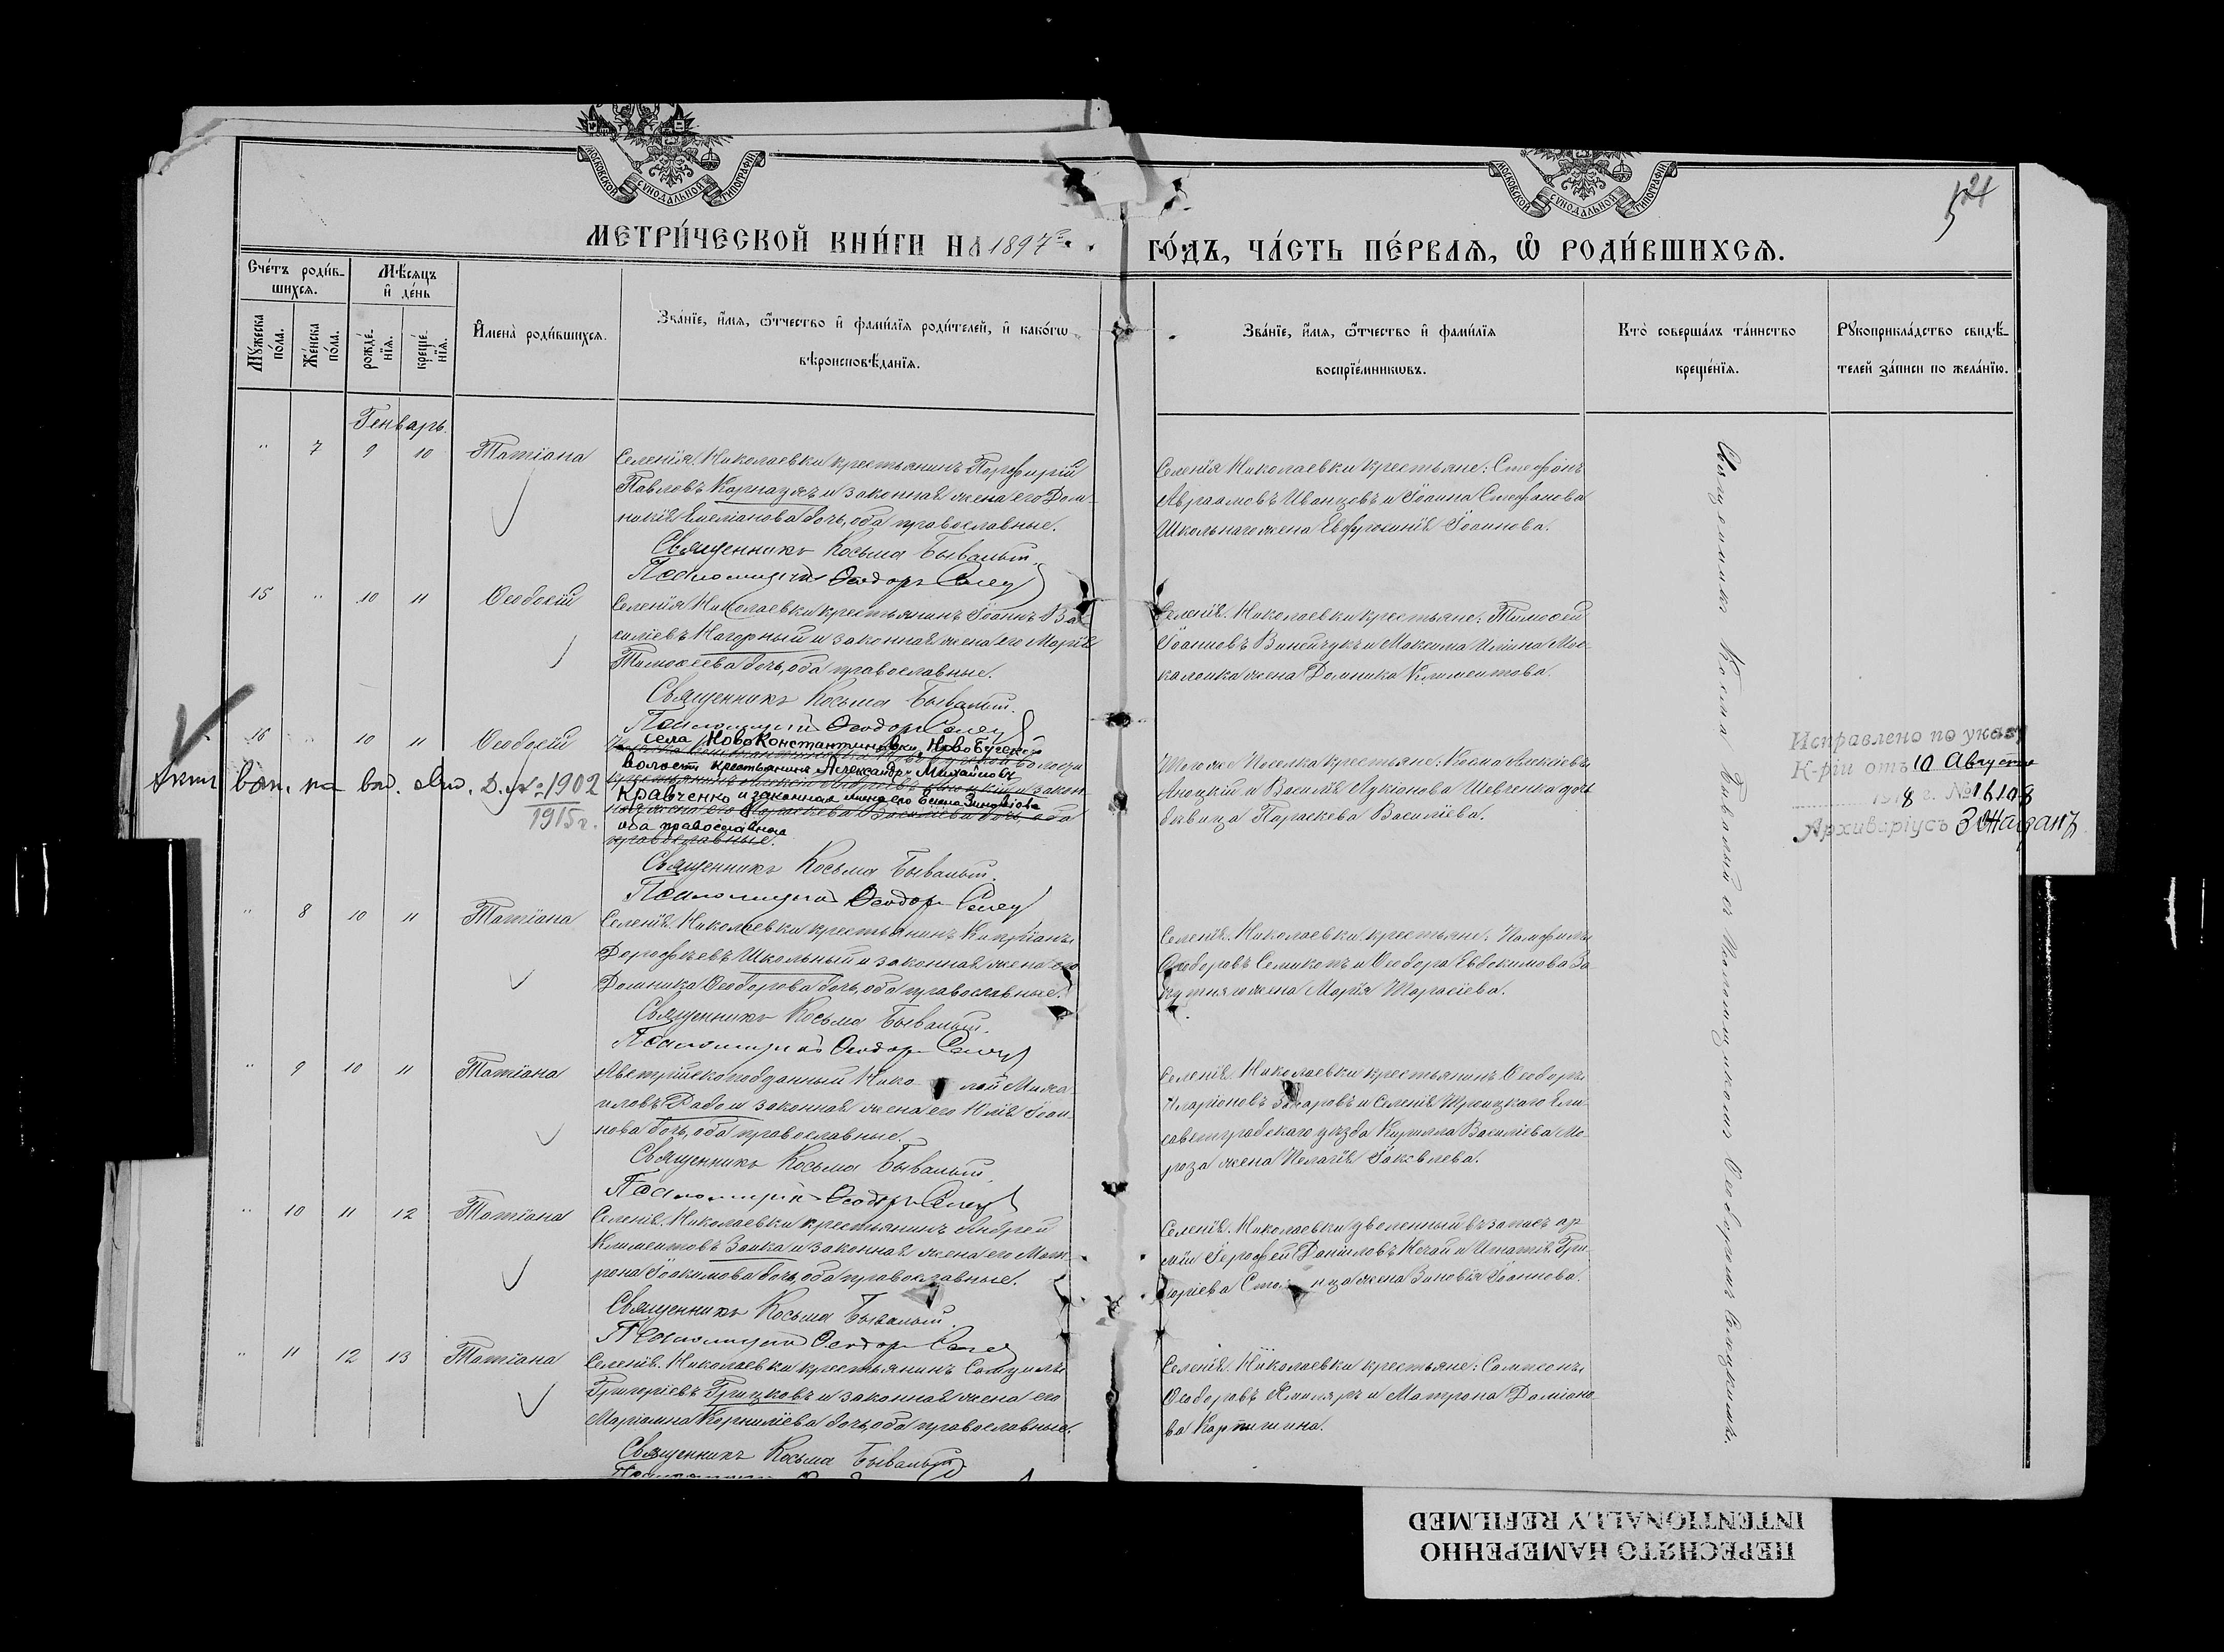 МОСКОВСКОЙ СѴНОДАЛЬНОЙ ТИПОГРАФІИ
МОСКОВСКОЙ СѴНОДАЛЬНОЙ ТИПОГРАФІИ
521
МЕТРИ́ЧЕСКОЙ КНИ́ГИ НА 1897 ГО́ДЪ, ЧА́СТЬ ПЕ́РВАѦ, Ѡ҆ РОДИ́ВШИХСѦ.
Сче́тъ роди́в-
шихсѧ.
Мѣ́сѧцъ
и҆ де́нь
Мꙋ́жеска
по́ла.
Же́нска
по́ла.
рожде́-
нїѧ.
креще́-
нїѧ.
И҆мена̀ роди́вшихсѧ.
Зва́нїе, и҆́мѧ, ѻ҆́тчество и҆ фами́лїѧ роди́телей, и҆ како́гѡ
вѣроисповѣ́данїѧ.
Зва́нїе, и҆́мѧ, ѻ҆́тчество и҆ фами́лїѧ
воспрїе́мникѡвъ.
Кто̀ соверша́лъ та́инство
креще́нїѧ.
Рꙋкоприкла́дство свидѣ́-
телей за́писи по жела́нїю.
Генварь
" 7 9 10 Татіана
Селенія Николаевки крестьянинъ Порфирій
Павловъ и законная жена его Дом-
никія Емеліанова дочь, оба православные.
Священникъ Косьма Бывалый.
Псаломщикъ Ѳеодоръ
Селенія Николаевки крестьяне: Стефанъ
Авраамовъ Иванцовъ и Іоанна Стефанова
Школьнаго жена Евфросинія Іоаннова.
15 " 10 11 Ѳеодосій
Селенія Николаевки крестьянинъ Іоаннъ Ва-
силіевъ Нагорный и законная жена его Марія
Тимоѳеева дочь, оба православные.
Священникъ Косьма Бывалый.
Псаломщикъ Ѳеодоръ
Селенія Николаевки крестьяне: Тимоѳей
Іоанновъ Винничукъ и Максима Ильина Мос-
каленка жена Домника Климентова.
16 " 10 11 Ѳеодосій
села НовоКонстантиновки, НовоБугской
волости крестьянина Александръ Михайловъ
Кравченко и законная жена его Елена Зиновіова
оба православные
православные.
Священникъ Косьма Бывалый.
Псаломщикъ Ѳеодоръ
Того же поселка крестьяне: Косма
и Василія Лукіанова Шевченка дочь
дѣвица Параскева Василіева.
1902
1915 г.
Исправлено по указу
К-ріи отъ 10 Августа
1918 г. № 16108
Архиваріусъ
" 8 10 11 Татіана
Селенія Николаевки крестьянинъ Кипріанъ
Дороѳеевъ Школьный и законная жена его
Домника Ѳеодорова дочь, оба православные.
Священникъ Косьма Бывалый.
Псаломщикъ Ѳеодоръ
Селенія Николаевки крестьяне: Памфилъ
Ѳеодоровъ и Ѳеодора Евдокимова За-
жена Марія Тарасіева.
" 9 10 11 Татіана
Австрійскоподданный Николай Миха-
иловъ и законная жена его Юлія Іоан-
нова дочь, оба православные.
Священникъ Косьма Бывалый.
Псаломщикъ Ѳеодоръ
Селенія Николаевки крестьянинъ Ѳеодоръ
Иларіоновъ Захаровъ и селенія Троицкаго Ели-
саветградскаго уѣзда Кирилла Василіева Мо-
роза жена Пелагія Іаковлева.
" 10 11 12 Татіана
Селенія Николаевки крестьянинъ Андрей
Климентовъ Заика и законная жена его Мат-
рона Іоакимова дочь, оба православные.
Священникъ Косьма Бывалый.
Псаломщикъ Ѳеодоръ
Селенія Николаевки уволенный въ запасъ ар-
міи Іероѳей Даниловъ Нечай и Игнатія Гри-
горіева жена Зиновія Іоаннова.
" 11 12 13 Татіана
Селенія Николаевки крестьянинъ Самуилъ
Григоріевъ Грицковъ и законная жена его
Маріамна Корниліева дочь, оба православные.
Священникъ Косьма Бывалый
Селенія Николаевки крестьяне: Сампсонъ
Ѳеодоровъ и Матрона Даміано-
ва
Священникъ Косьма Бывалый съ псаломщикомъ Ѳеодоромъ
ПЕРЕСНЯТО НАМЕРЕННО
INTENTIONALLY REFILMED